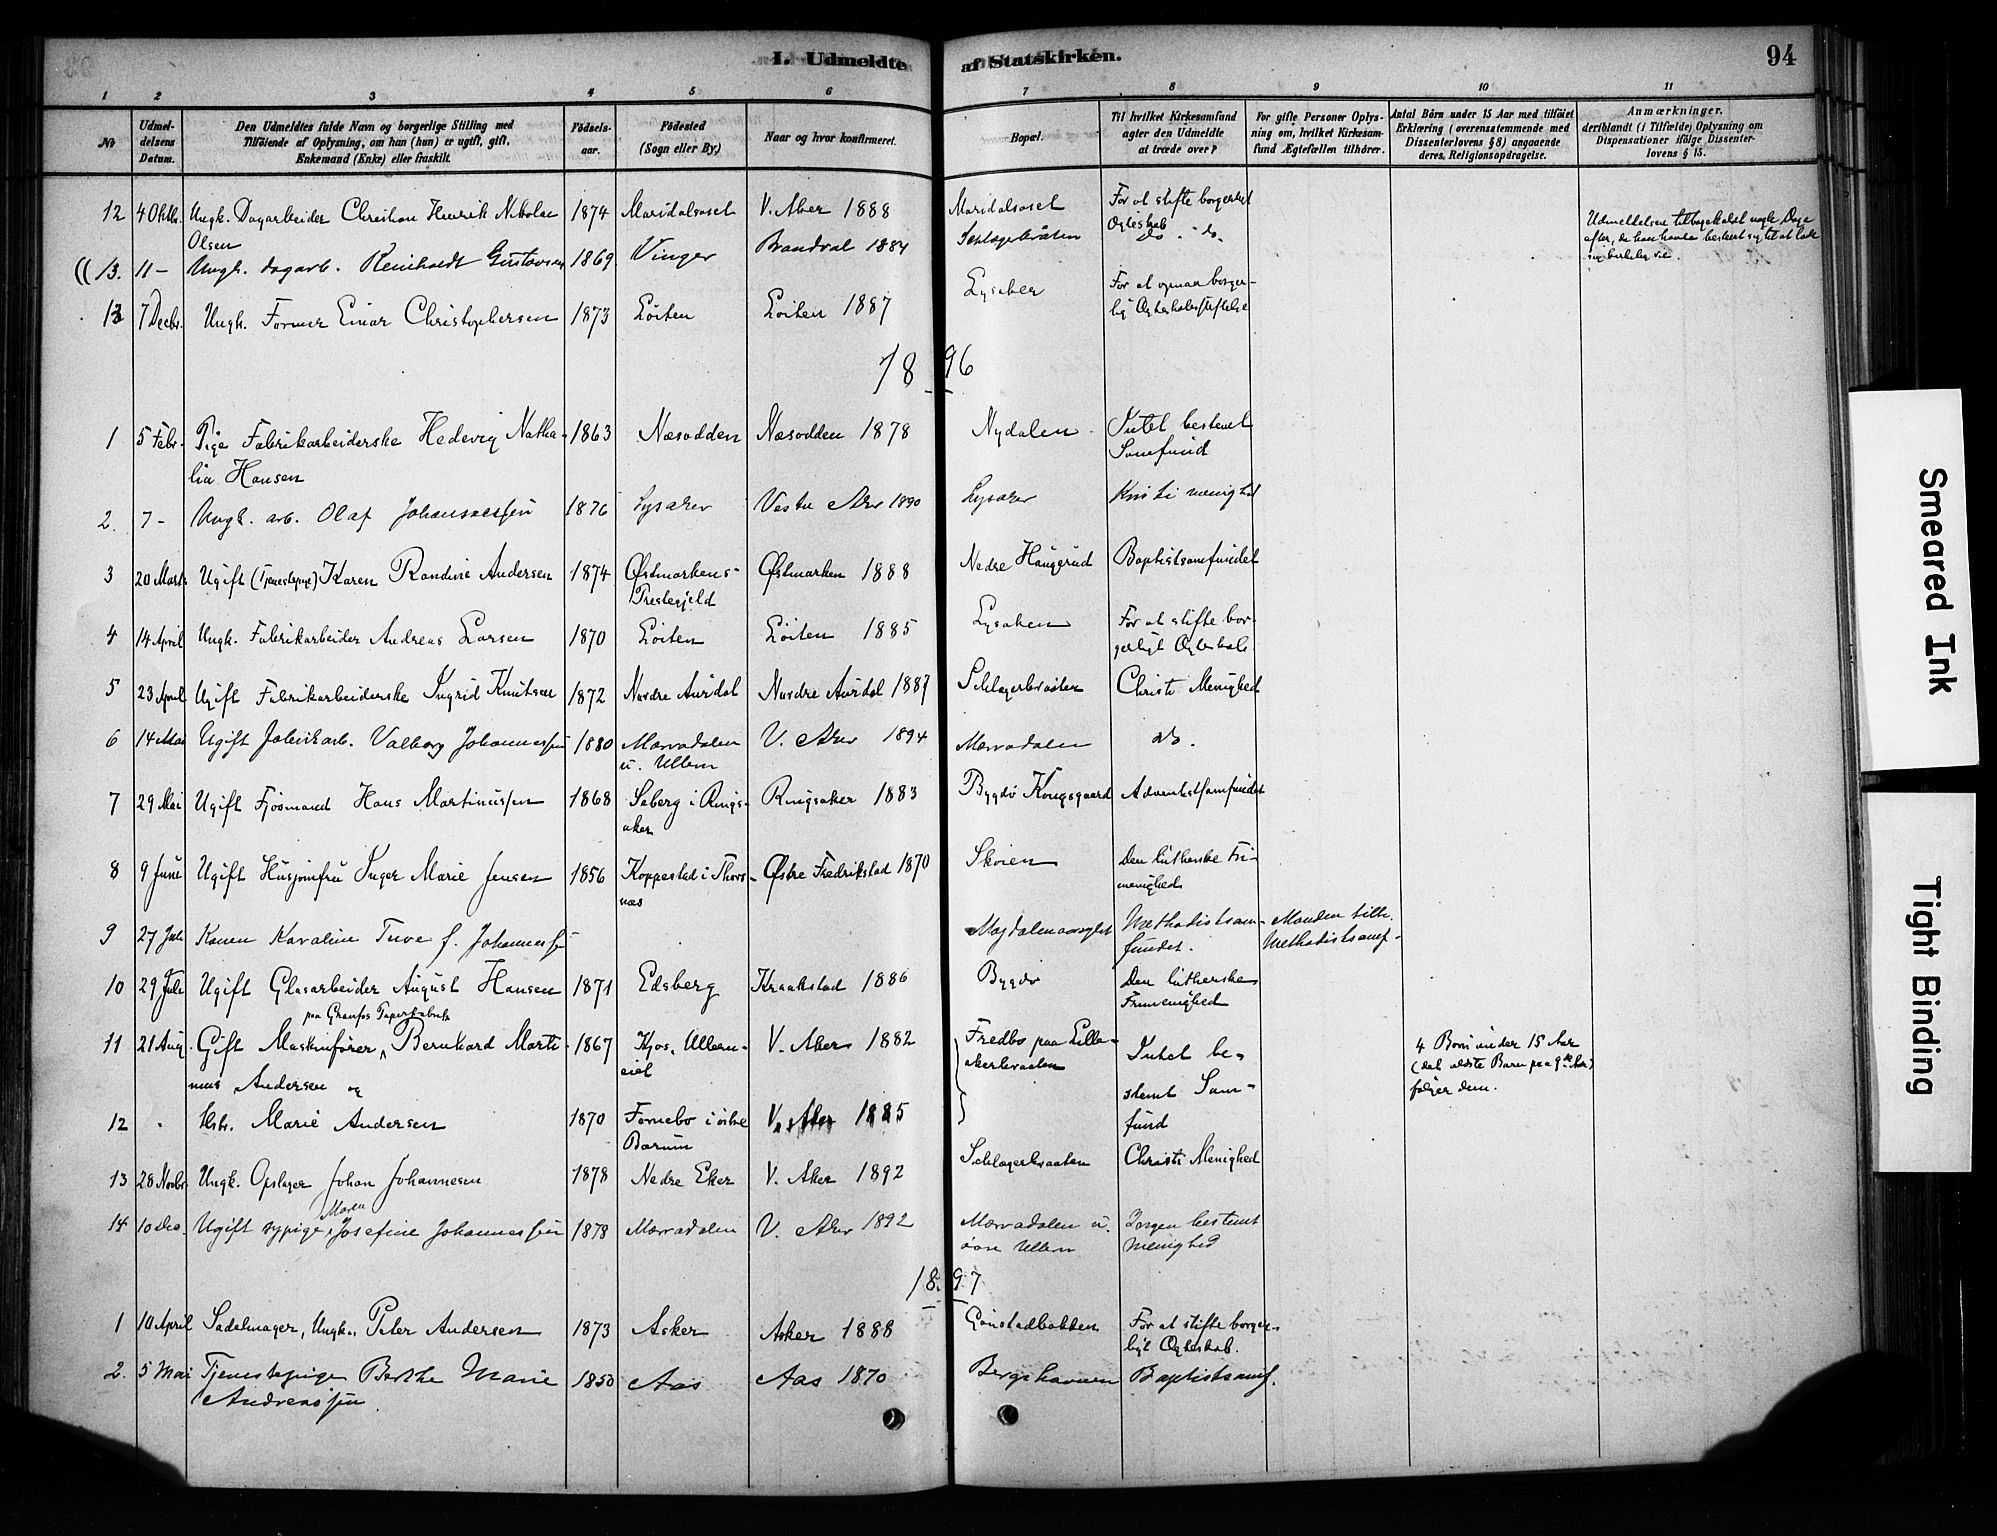 I. Udmeldte af Statskirken.
94
1 2 3 4 5 6 7 8 9 10 11
No
Udmeldelsens Datum.
Den Udmeldtes fulde Navn og borgerlige Stilling med
Tilföiende af Oplysning, om han (hun) er ugift, gift,
Enkemand (Enke) eller fraskilt.
Födselsaar.
Födested
(Sogn eller By)
Naar og hvor konfirmeret.
Bopæl.
Til hvilket Kirkesamfund
agter den Udmeldte
at træde over?
For gifte Personer Oplysning om, hvilket Kirkesamfund Ægtefællen tilhörer.
Antal Börn under 15 Aar med tilföiet
Erklæring (overensstemmende med
Dissenterlovens § 8) angaaende
deres Religionsopdragelse.
Anmærkninger.
deriblandt (i Tilfælde) Oplysning om
Dispensationer ifölge Dissenterlovens § 15.
12 4 Oktbr. Ungk. Dagarbeider Christian Henrik Nikolai 1874 Maridalsoset V. Aker 1888 Maridalsoset For at stifte borgerligt
Olsen Ægteskab
Udmeldelsen tilbagekaldt nogle Dage
efter, da han havde bestemt sig til at lade
sig kirkelig vie.
13. 11 – Ungk. dagarb. Reinholdt Gustavsen 1869 Vinger Brandval 1884 Schlagerbråten do. do.
13 7 Decbr. Ungk. Former Einar Christophersen 1873 Löiten Löiten 1887 Lysaker For at opnaa borgerlig Ægteskabsstiftelse
1896
1 5 Febr. Pige Fabrikarbeiderske Hedevig Natha- 1863 Næsodden Næsodden 1878 Nydalen Intet bestemt
lia Hansen Samfund
2. 7 – Ungk. arb. Olaf Johannessen 1876 Lysaker Vestre Aker 1890 Lysaker Kristi menighed
3 20 Marts Ugift (Tjenestepige) Karen Randine Andersen 1874 Østmarkens- Østmarken 1888 Nedre Haugerud Baptistsamfundet
Prestegjeld
4 14 April Ungk. Fabrikarbeider Andreas Larsen 1870 Löiten Löiten 1885 Lysaken For at stifte bor-
gerligt Ægteskab.
5 23 April Ugift Fabrikarbeiderske Ingrid Knutsen 1872 Nordre Aurdal Nordre Aurdal 1887 Schlagerbraaten Christi Menighed
6 14 Mai Ugift Fabrikarb. Valborg Johannessen 1880 Mærradalen V. Aker 1894 Mærradalen do.
u. Ullern
7 29 Mai Ugift Fjösmand Hans Martinussen 1868 Seberg i Rings- Ringsaker 1883 Bygdö Kongsgaard Adventistsamfundet
aker
8 9 Juni Ugift Husjomfru Inger Marie Jensen 1856 Koppestad i Thors- Østre Fredrikstad 1870 Skøien Den lutherske Fri-
næs menighed
9 27 Juli Konen Karoline Tuve f. Johannessen Methodistsam- Manden tilh.
fundet. Methodistsamf.
10 29 Juli Ugift Glasarbeider August Hansen 1871 Edsberg Kraakstad 1886 Bygdø Den lutherske
Frimenighed
paa Granfos Papirfabrik
11 21 Aug. Gift Maskinfører, Bernhard Marti- 1867 Kjos, Ullern- V. Aker 1882 Fredbo paa Lille- Intet be-
nius Andersen og eiet akerbraaten stemt Sam-
4 Børn under 15 Aar
(det ældste Barn paa 9de Aar)
følger dem.
12 Hstr. Marie Andersen 1870 Fornebo i østre V. Aker 1885 fund
Bærum
13 28 Novbr. Ungk. Opslager Johan Johannesen 1878 Nedre Eker V. Aker 1892 Schlagerbraaten Christi Menighed
Maren
14 10 Dec. Ugift sypige Josefine Johannessen 1878 Mærradalen V. Aker 1892 Mærradalen u. Ingen bestemt
øvre Ullern menighed
1897
1 10 April Sadelmager, Ungk., Peter Andersen 1873 Asker Asker 1888 For at stifte borger-
ligt Ægteskab.
2. 5 Mai Tjenestepige Berthe Marie 1850 Aas Aas 1870 Bergshavnen Baptistsamf.
Andreassen
Smeared Ink
Tight Binding